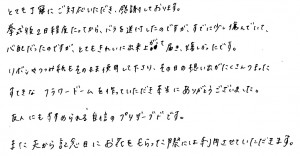 とても丁寧にご対応いただき、感謝しております。
挙式後2日程度たってから、バラを送付したのですが、すでに少し傷んでいて、
心配だったのですが、とてもきれいに出来上がって届き、嬉しかったです。
リボンやつつみ紙もそのまま使用して下さり、その日の想い出がたくさんつまった
すてきなフラワードームを作っていただき本当にありがとうございました。
友人にもすすめられる自信のプリザーブドです。
また夫から記念日にお花をもらった際には利用させていただきます。